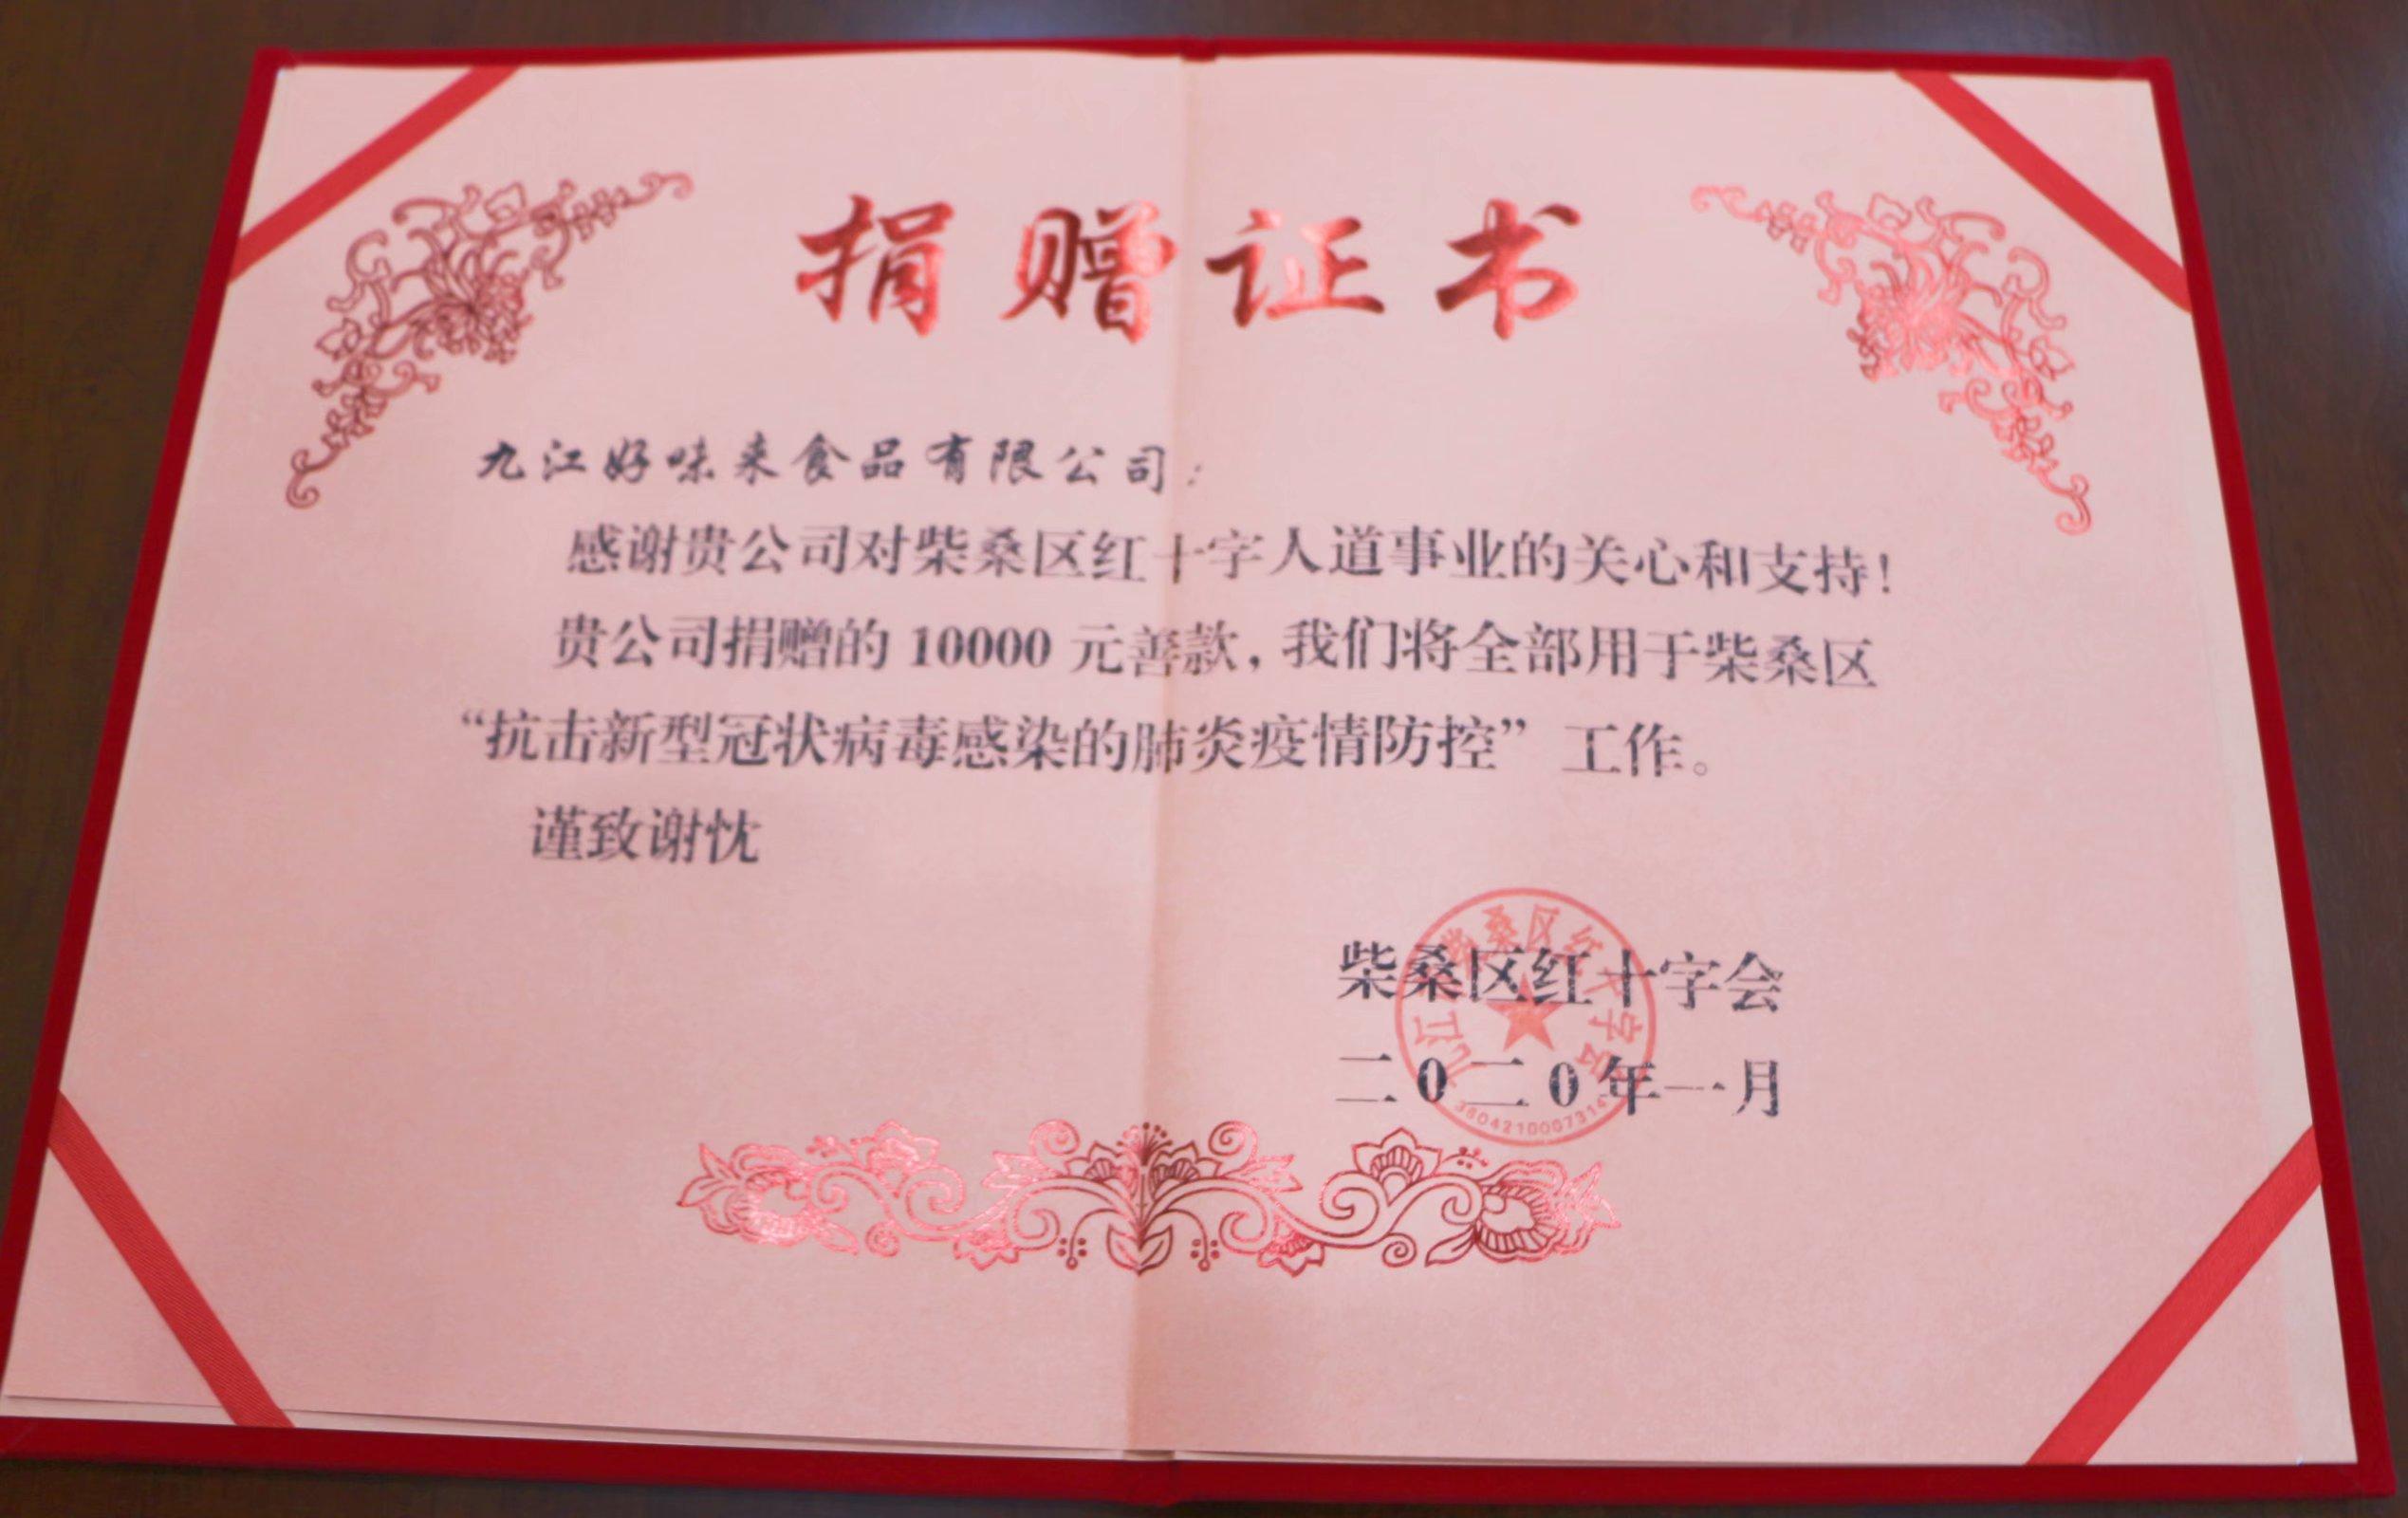 捐赠证书
九江好味来食品有限公司：
感谢贵公司对柴桑区红十字人道事业的关心和支持！
贵公司捐赠的 10000 元善款，我们将全部用于柴桑区
“抗击新型冠状病毒感染的肺炎疫情防控” 工作。
谨致谢忱
柴桑区红十字会
二0二0年一月
柴桑区红十字会